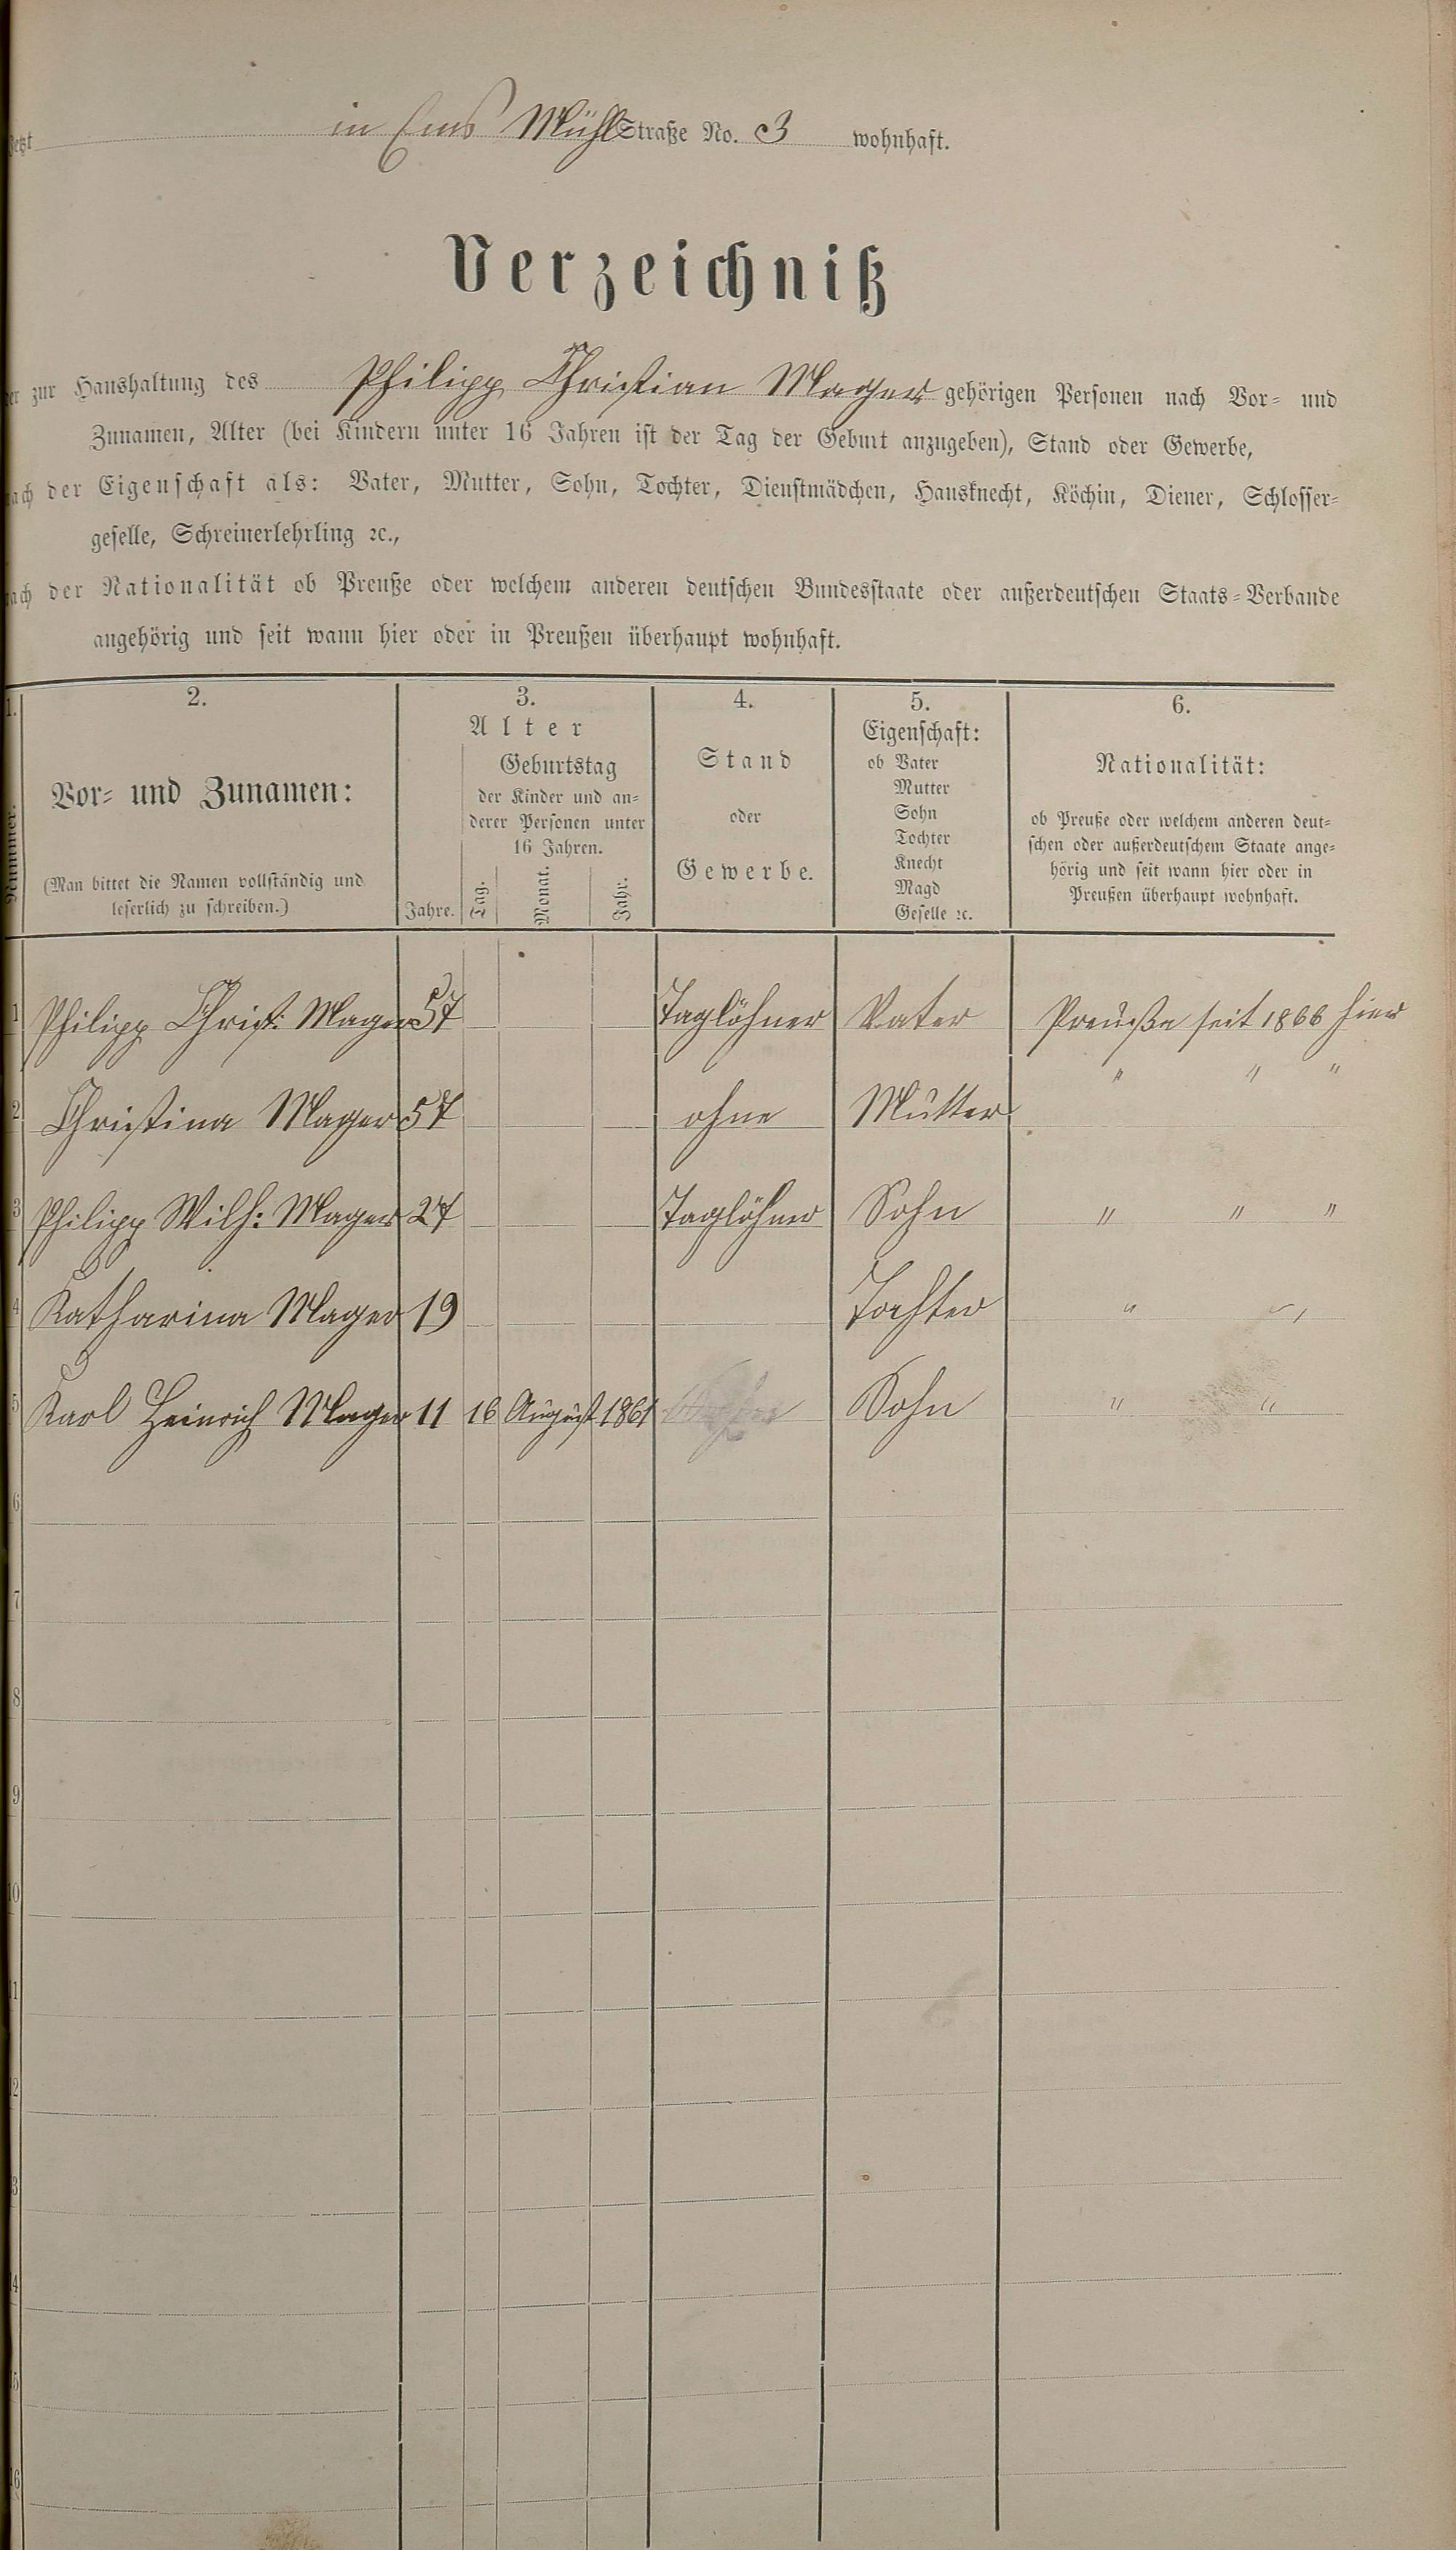 in Ems Mühl Straße No. 3 wohnhaft.
Verzeichniß
der zur Haushaltung des Philipp Christian Mager gehörigen Personen nach Vor= und
Zunamen, Alter (bei Kindern unter 16 Jahren ist der Tag der Geburt anzugeben), Stand oder Gewerbe,
nach der Eigenschaft als: Vater, Mutter, Sohn, Tochter, Dienstmädchen, Hausknecht, Köchin, Diener, Schlosser=
geselle, Schreinerlehrling ꝛc.,
nach der Nationalität ob Preuße oder welchem anderen deutschen Bundesstaate oder außerdeutschen Staats=Verbande
angehörig und seit wann hier oder in Preußen überhaupt wohnhaft.
1. 2. 3. 4. 5. 6.
Nummer.
Vor= und Zunamen:
(Man bittet die Namen vollständig und
leserlich zu schreiben.)
Alter
Jahre.
Geburtstag
der Kinder und an=
derer Personen unter
16 Jahren.
Tag. Monat. Jahr.
Stand
oder
Gewerbe.
Eigenschaft:
ob Vater
Mutter
Sohn
Tochter
Knecht
Magd
Geselle ꝛc.
Nationalität:
ob Preuße oder welchem anderen deut=
schen oder außerdeutschem Staate ange=
hörig und seit wann hier oder in
Preußen überhaupt wohnhaft.
1 Philipp Christ: Mager 57 Taglöhner Vater Preuße seit 1866 hier
2 Christina Mager 57 ohne Mutter " " "
3 Philipp Wilh: Mager 27 Taglöhner Sohn " " "
4 Katharina Mager 19 Tochter " "
5 Karl Heinrich Mager 11 16 August 1861 Sohn " "
6
7
8
9
10
11
12
13
14
15
16